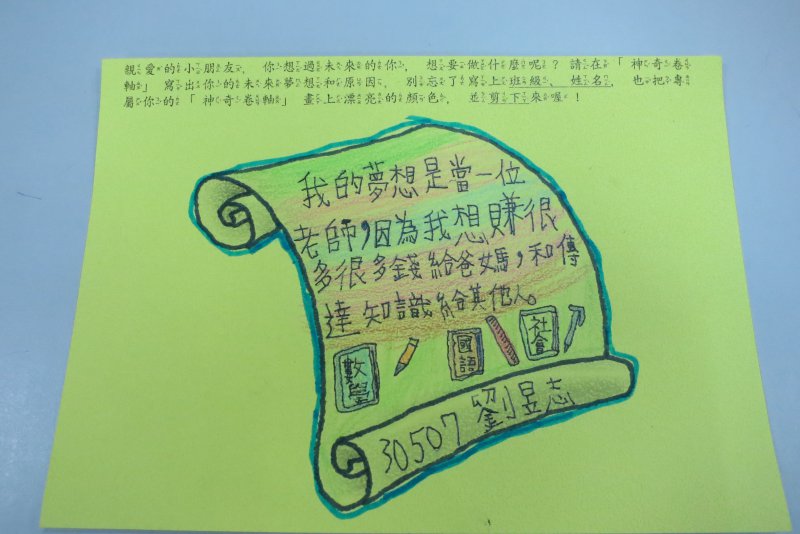 親愛的小朋友，你想過未來的你，想要做什麼呢？請在「神奇卷
軸」寫出你的未來夢想和原因，別忘了寫上班級、姓名，也把專
屬你的「神奇卷軸」畫上漂亮的顏色，並剪下來喔！
我的夢想是當一位
老師，因為我想賺很
多很多錢給爸媽，和傳
達知識給其他人。
數學
國語
社會
30507 劉昱志